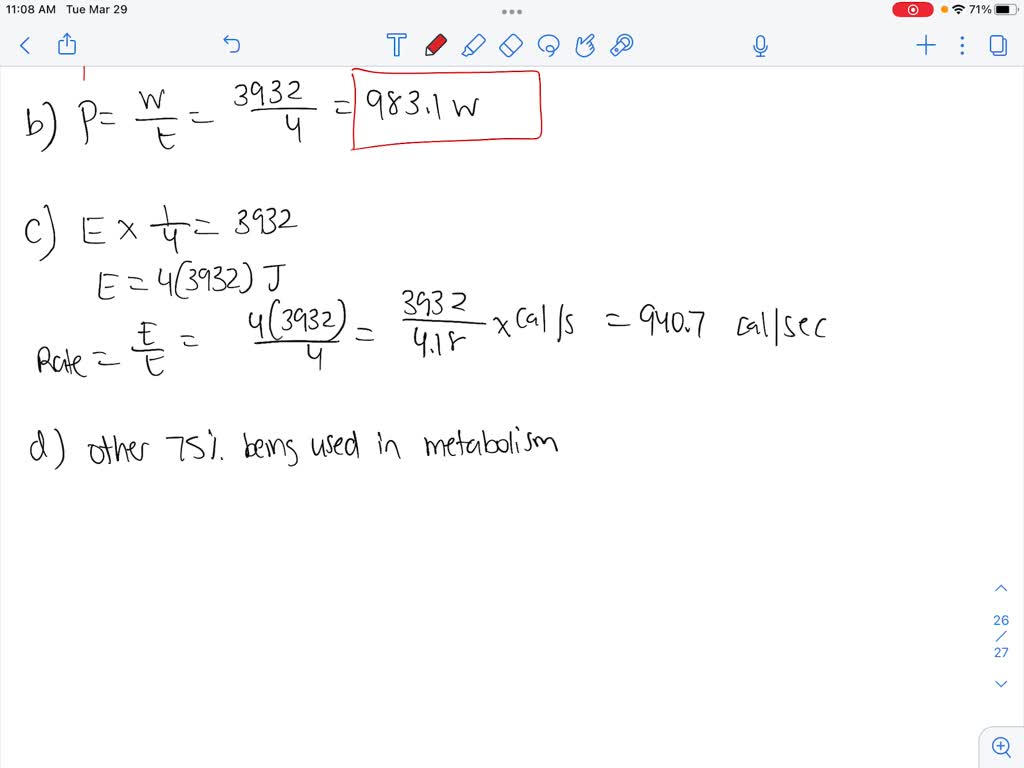 11:08 AM Tue Mar 29
71%
b) P = W/t = 3932/4 = 983.1 W
c) E × 1/4 = 3932
E = 4(3932) J
Rate = E/t = 4(3932)/4 = 3932/4.18 × Cal/s = 940.7 cal/sec
d) other 75% being used in metabolism
26
/
27